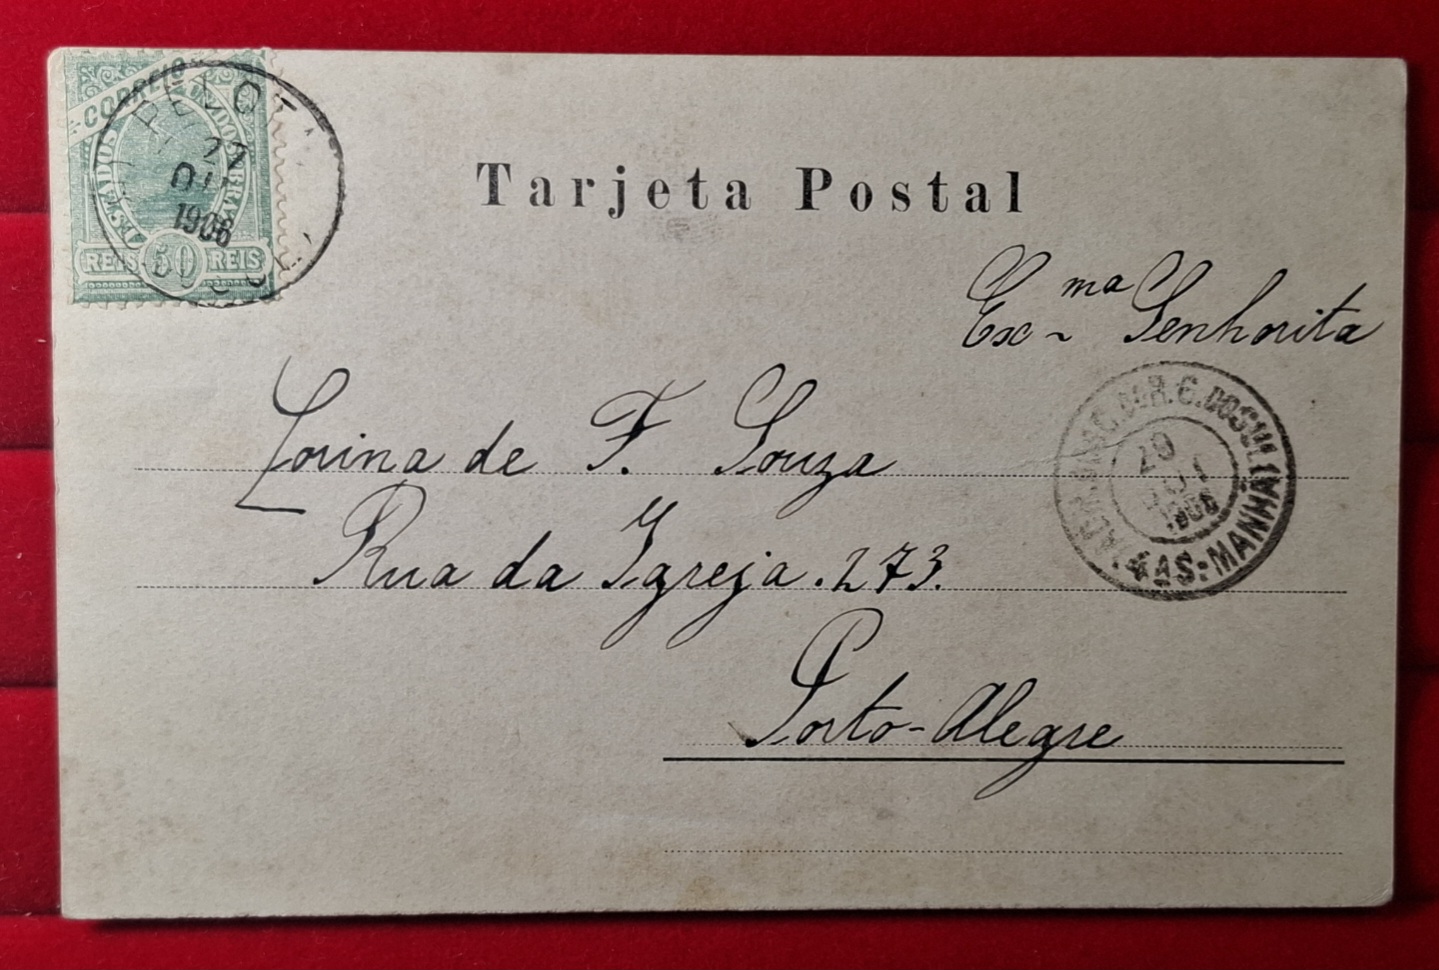 CORREIO
ESTADOS UNIDOS DO BRASIL
REIS 50 REIS
PELOT
22
OU
1906
Tarjeta Postal
Exma Senhorita
Lorina de F. Souza
Rua da Igreja. 273.
Porto-Alegre
R. G. DO SUL
1906
4 AS: MANHÃ